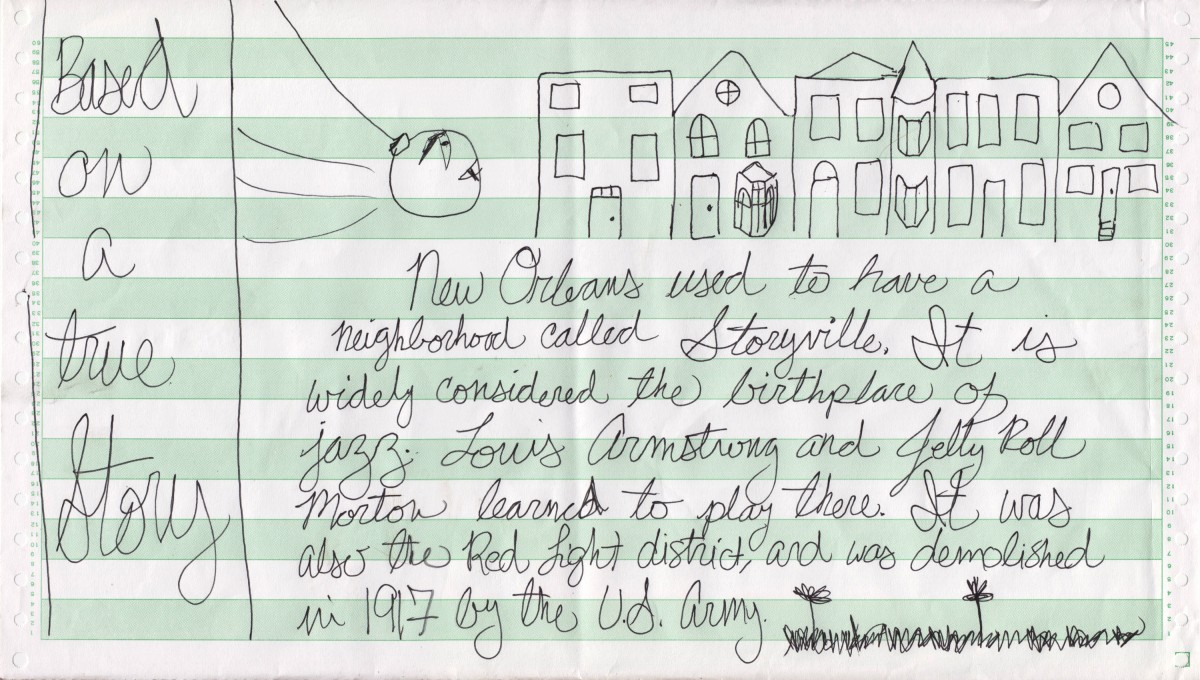 Based
on
a
true
Story
New Orleans used to have a
neighborhood called Storyville. It is
widely considered the birthplace of
jazz. Louis Armstrong and Jelly Roll
Morton learned to play there. It was
also the Red Light district, and was demolished
in 1917 by the U.S. Army.